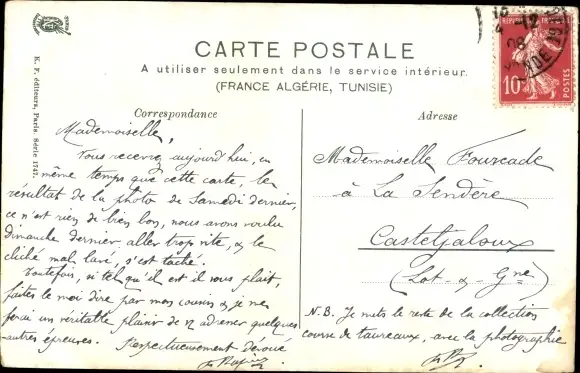 CARTE POSTALE
A utiliser seulement dans le service intérieur.
(FRANCE ALGÉRIE, TUNISIE)
K. F. éditeurs, Paris. Série 1747.
RÉPUBLIQUE FRANÇAISE
10
POSTES
Correspondance
Mademoiselle,
Vous recevrez aujourd'hui, en
même temps que cette carte, le
résultat de la photo de Samedi dernier,
ce n'est rien de bien bon, nous avons voulu
Dimanche dernier, aller trop vite, & le
cliché mal lavé, s'est taché.
Toutefois, si tel qu'il est il vous plait,
faites le moi dire par mon cousin & je me
ferai un véritable plaisir de v. adresser quelques
autres épreuves. Respectueusement dévoué
Adresse
Mademoiselle Fourcade
à La Sendère
Casteljaloux
(Lot - & - Gne)
N.B. Je mets le reste de la collection
course de taureaux, avec la photographie